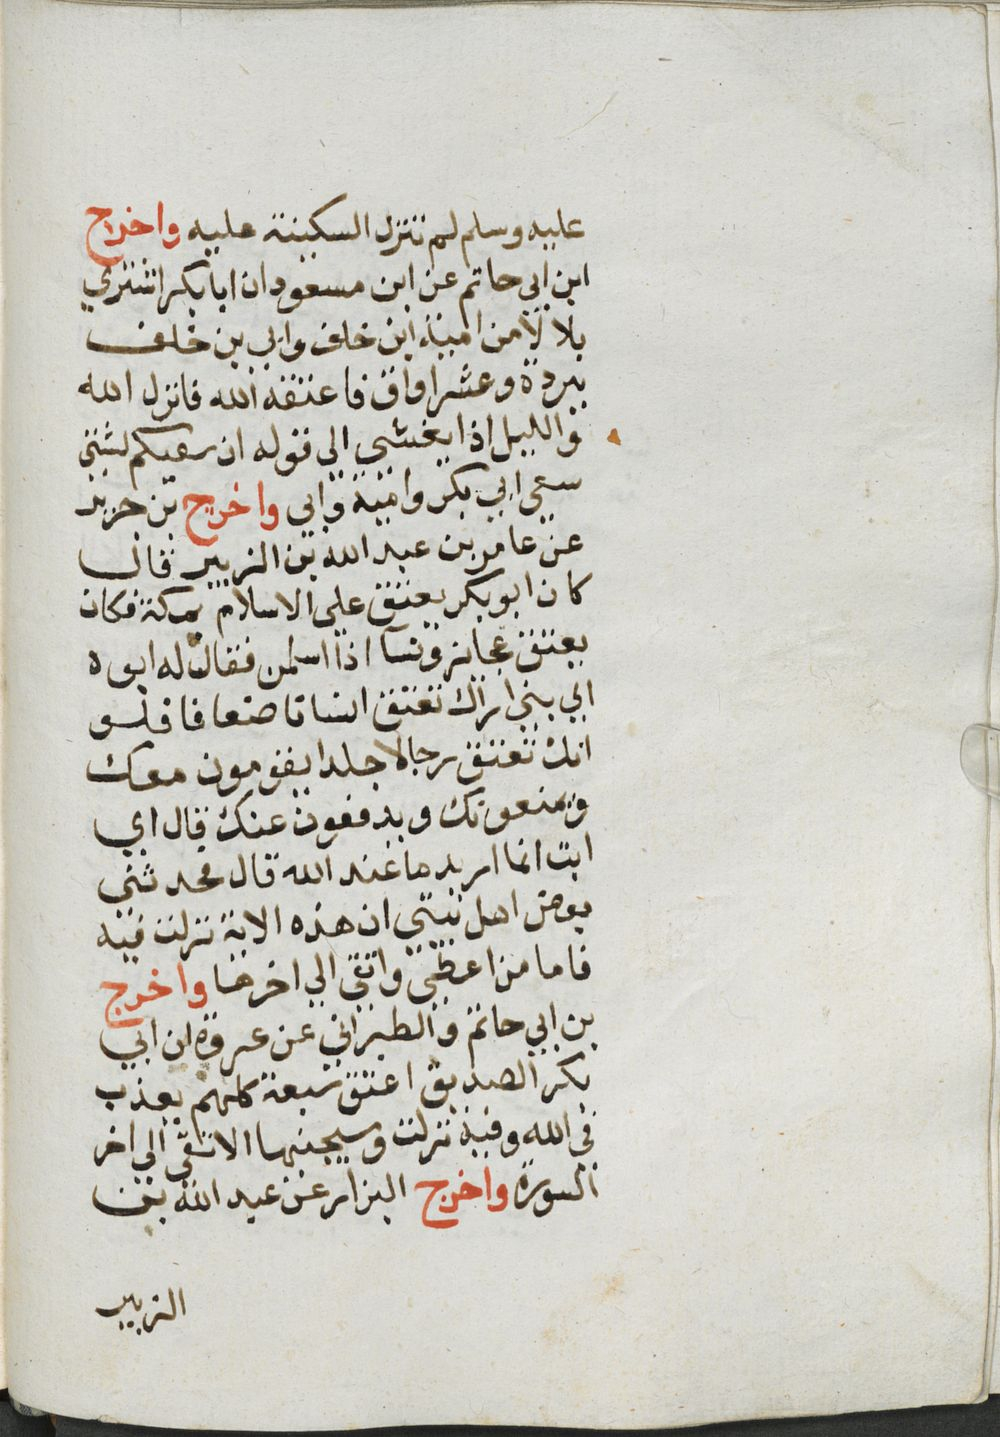 عليه وسلم لم تنزل السكينة عليه واخرج
ابن ابي حاتم عن ابن مسعود ان ابا بكر اشتري
بلا لا من امية ابن خلف وابي بن خلف
ببردة وعشر اواق فاعتقه الله فانزل الله
والليل اذا يغشي الي قوله ان سعيكم لشتي
سعي ابي بكر وامية وابي واخرج بن جرير
عن عامر بن عبد الله بن الزبير قال
كان ابو بكر يعتق علي الاسلام بمكة فكان
يعتق عجايز ونسآ اذا اسلمن فقال له ابوه
اي بني اراك تعتق اناسا ضعافا فلو
انك تعتق رجالا جلدا يقومون معك
ويمنعونك ويدفعون عنك قال اي
ابت انما اريد ما عند الله قال فحدثني
بعض اهل بيتي ان هذه الاية نزلت فيه
فاما من اعطي واتقي الي اخرها واخرج
بن ابي حاتم والطبراني عن عروة ان ابي
بكر الصديق اعتق سبعة كلهم يعذب
في الله وفيه نزلت وسيجنبها الاتقي الي اخر
السورة واخرج البزار عن عبد الله بن
الزبير